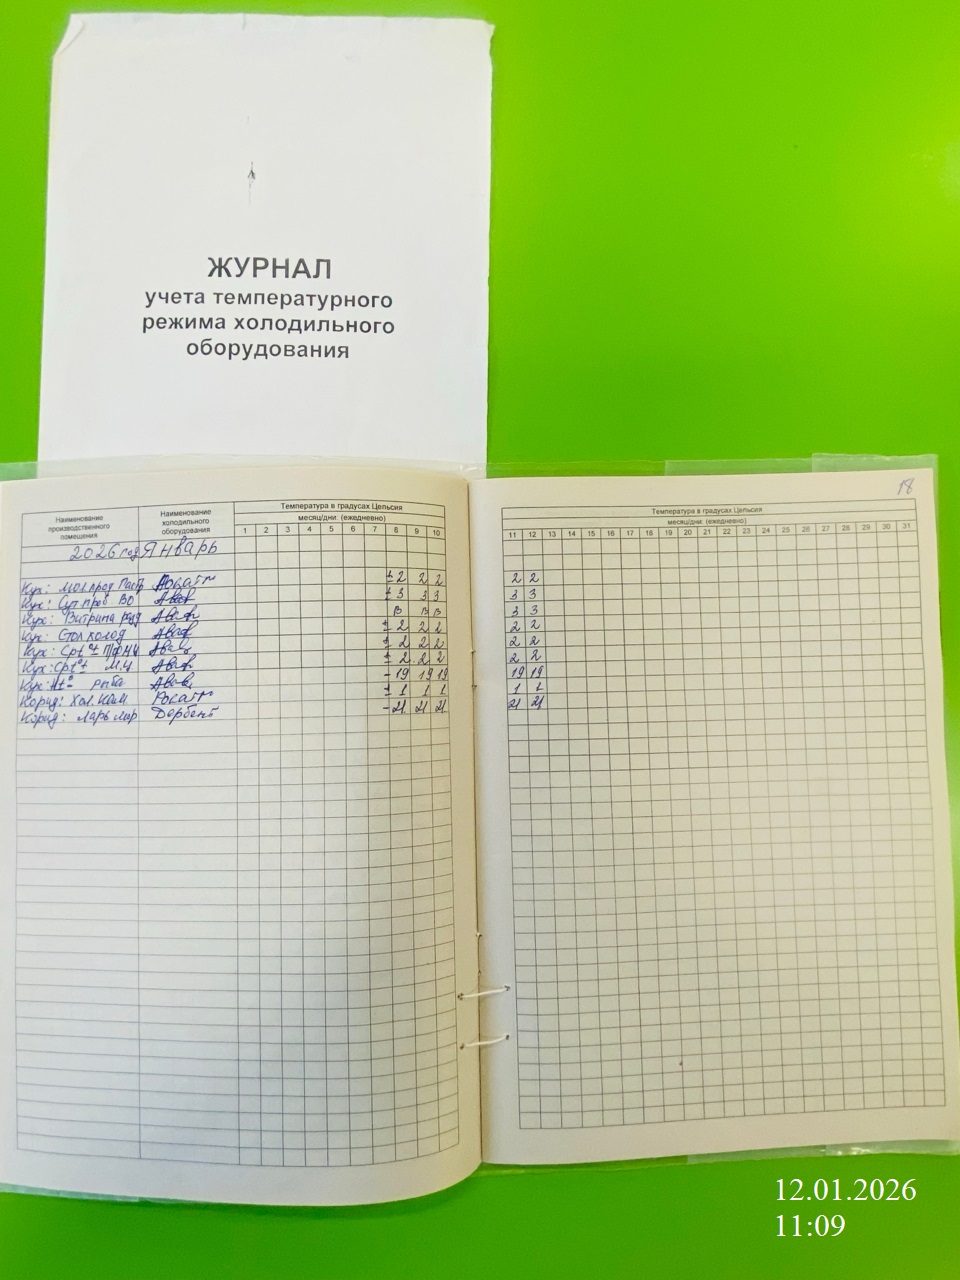 ЖУРНАЛ
учета температурного
режима холодильного
оборудования
18
Наименование производственного помещения
Наименование холодильного оборудования
Температура в градусах Цельсия
месяц/дни: (ежедневно)
1 2 3 4 5 6 7 8 9 10
2026 год Январь
Кух: мол прод +2 2 2
Кух: +3 3 3
Кух: Витрина В В В
Кух: Стол холод +2 2 2
Кух: +2 2 2
Кух: +2 2 2
Кух: рыба -19 19 19
Корид: Хол. Кам +1 1 1
Корид: Ларь Дербент -21 21 21
Температура в градусах Цельсия
месяц/дни: (ежедневно)
11 12 13 14 15 16 17 18 19 20 21 22 23 24 25 26 27 28 29 30 31
2 2
3 3
3 3
2 2
2 2
2 2
19 19
1 1
21 21
12.01.2026
11:09